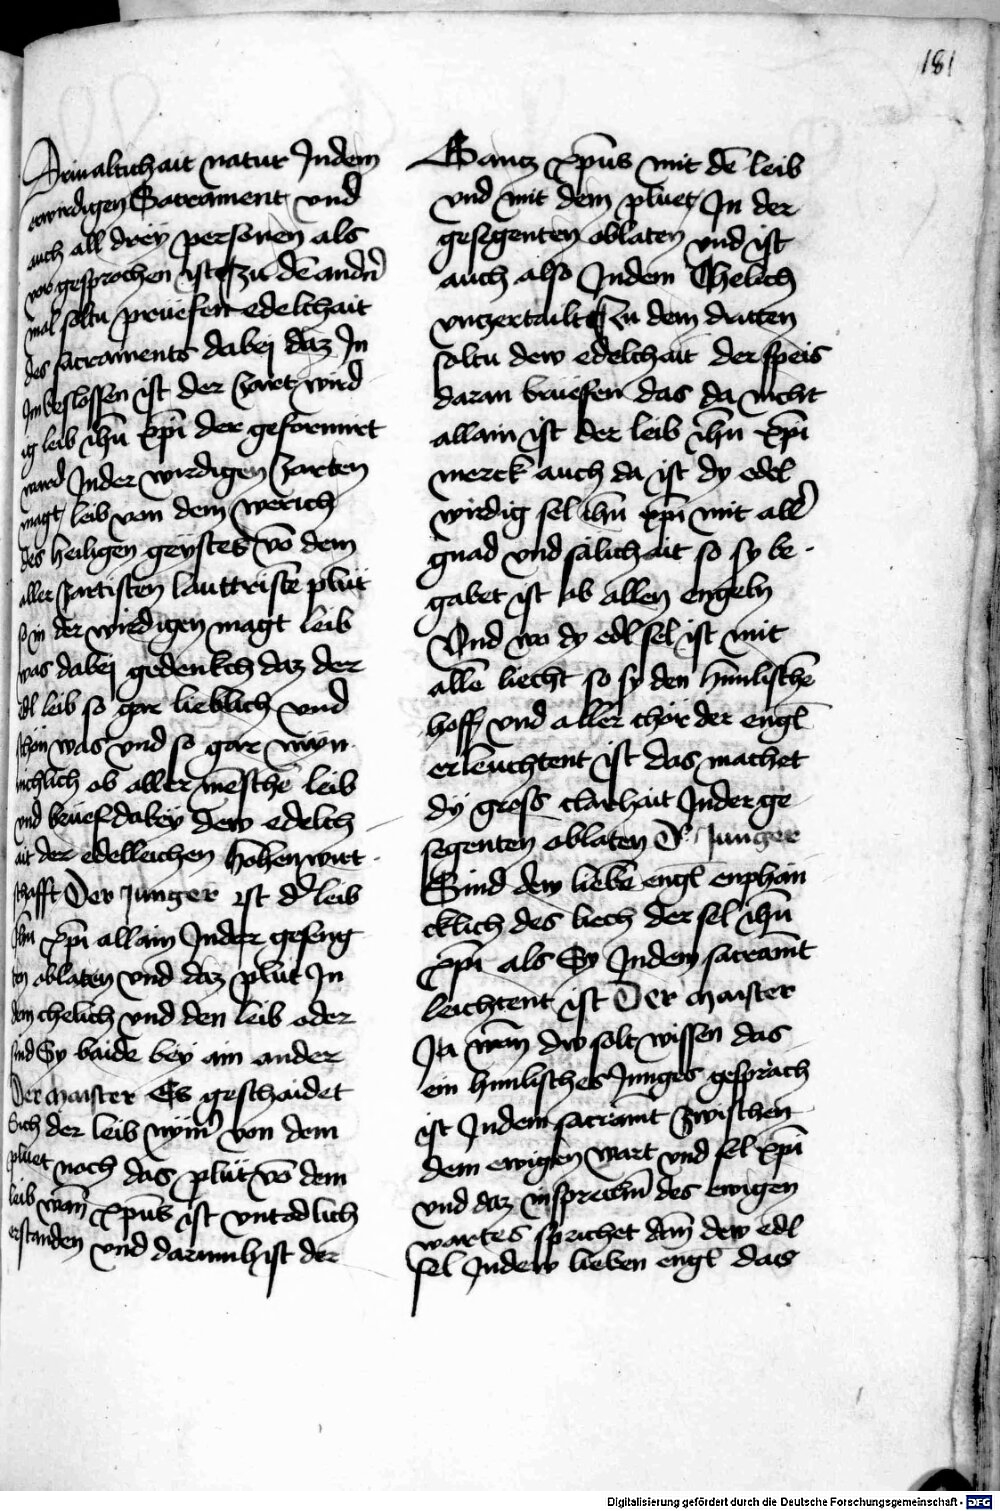 181
Drivaltichait natur Jndem
erwirdigen Sacrament vnd
auch all dreÿ personen als
vor gesprochen ist Zu dē andn̄
mal soltu prüefen edelchait
des sacraments dabej daz Jn
Jm beslossen ist der zaret wird
ig leib ihū xp̄i der geformirt
ward Jnder wirdigen zarten
magt leib von dem werich
des heiligen geÿstes vō dem
aller zartisten lauttristē plüt
so in der wirdigen magt leib
was dabej gedenkch daz der
edl leib so gar lieblich vnd
schön was vnd so gar wun
nichlich ob aller mēschē leib
vnd brüef dabeÿ dew edelch
ait der edelleichen hohen wirt
schafft Der Junger ist d' leib
Jhū xp̄i allain Jnder geseng
ten oblaten vnd daz plüt Jn
dem chelich vnd den leib oder
sind Sy baide bey ain ander
Der maister Es geschaidet
Sich der leib nÿm̄ von dem
pluet noch das plüt vō dem
leib wan̄ xp̄us ist vntodlich
erstanden vnd darumb ist der
Gancz xp̄us mit dē leib
vnd mit dem pluet Jn der
gesegenten oblaten vnd ist
auch also Jndem Chelich
vnczertailt Zu dem dritten
soltu dew edelchait der speis
daran brüefen das da nicht
allain ist der leib ihū xp̄i
merck auch da ist dy edel
wirdig sel ihū xp̄i mit all'
gnad vnd sälichait so sy be
gabet ist ob allen engeln
Vnd wo dy edl sel ist mit
allē liecht so sy den himlischē
hoff vnd aller chör der engl
erleuchtent ist das machet
dÿ gross clarhait Jnder ge
segenten oblaten D' Junger
Sind dew liebē engl enphän
cklich des liech der sel ihū
xp̄i als Sy Jndem sacramt
leichtent ist Der maister
Ja wan̄ dw solt wissen das
ein himlisches Jnniges gespräch
ist Jndem sacramt zwischen
dem ewigen wart vnd sel xp̄i
vnd daz insprechn̄ des ewigen
wartes sprichet dan̄ dew edl
sel Jndew lieben engl das
Digitalisierung gefördert durch die Deutsche Forschungsgemeinschaft - DFG